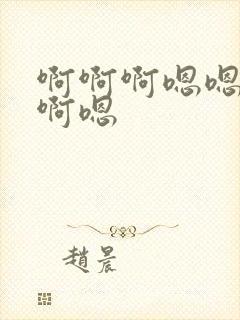 啊啊啊嗯嗯
啊嗯
趙晨